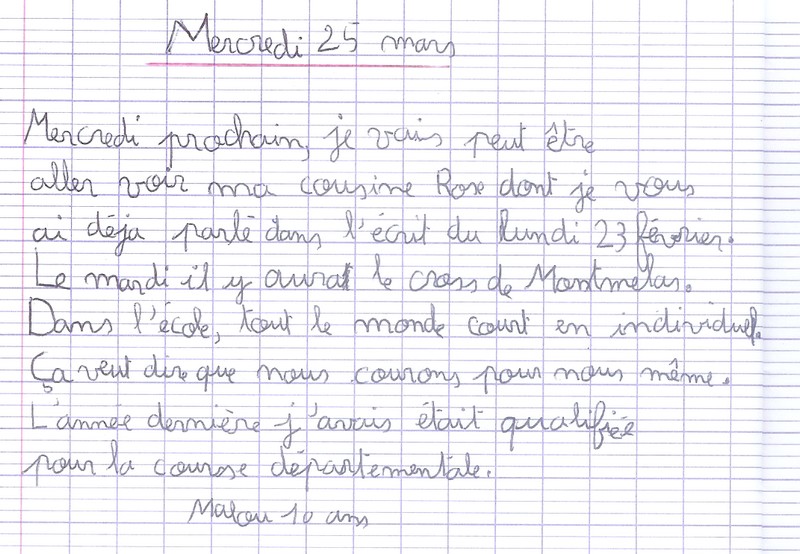 Mercredi 25 mars
Mercredi prochain, je vais peut être
aller voir ma cousine Rose dont je vous
ai déja parlé dans l'écrit du lundi 23 février.
Le mardi il y aurat le cross de Montmélas.
Dans l'école, tout le monde court en individuel.
Ça veut dire que nous courons pour nous même.
L'année dernière j'avais était qualifiée
pour la course départementale.
Malou 10 ans